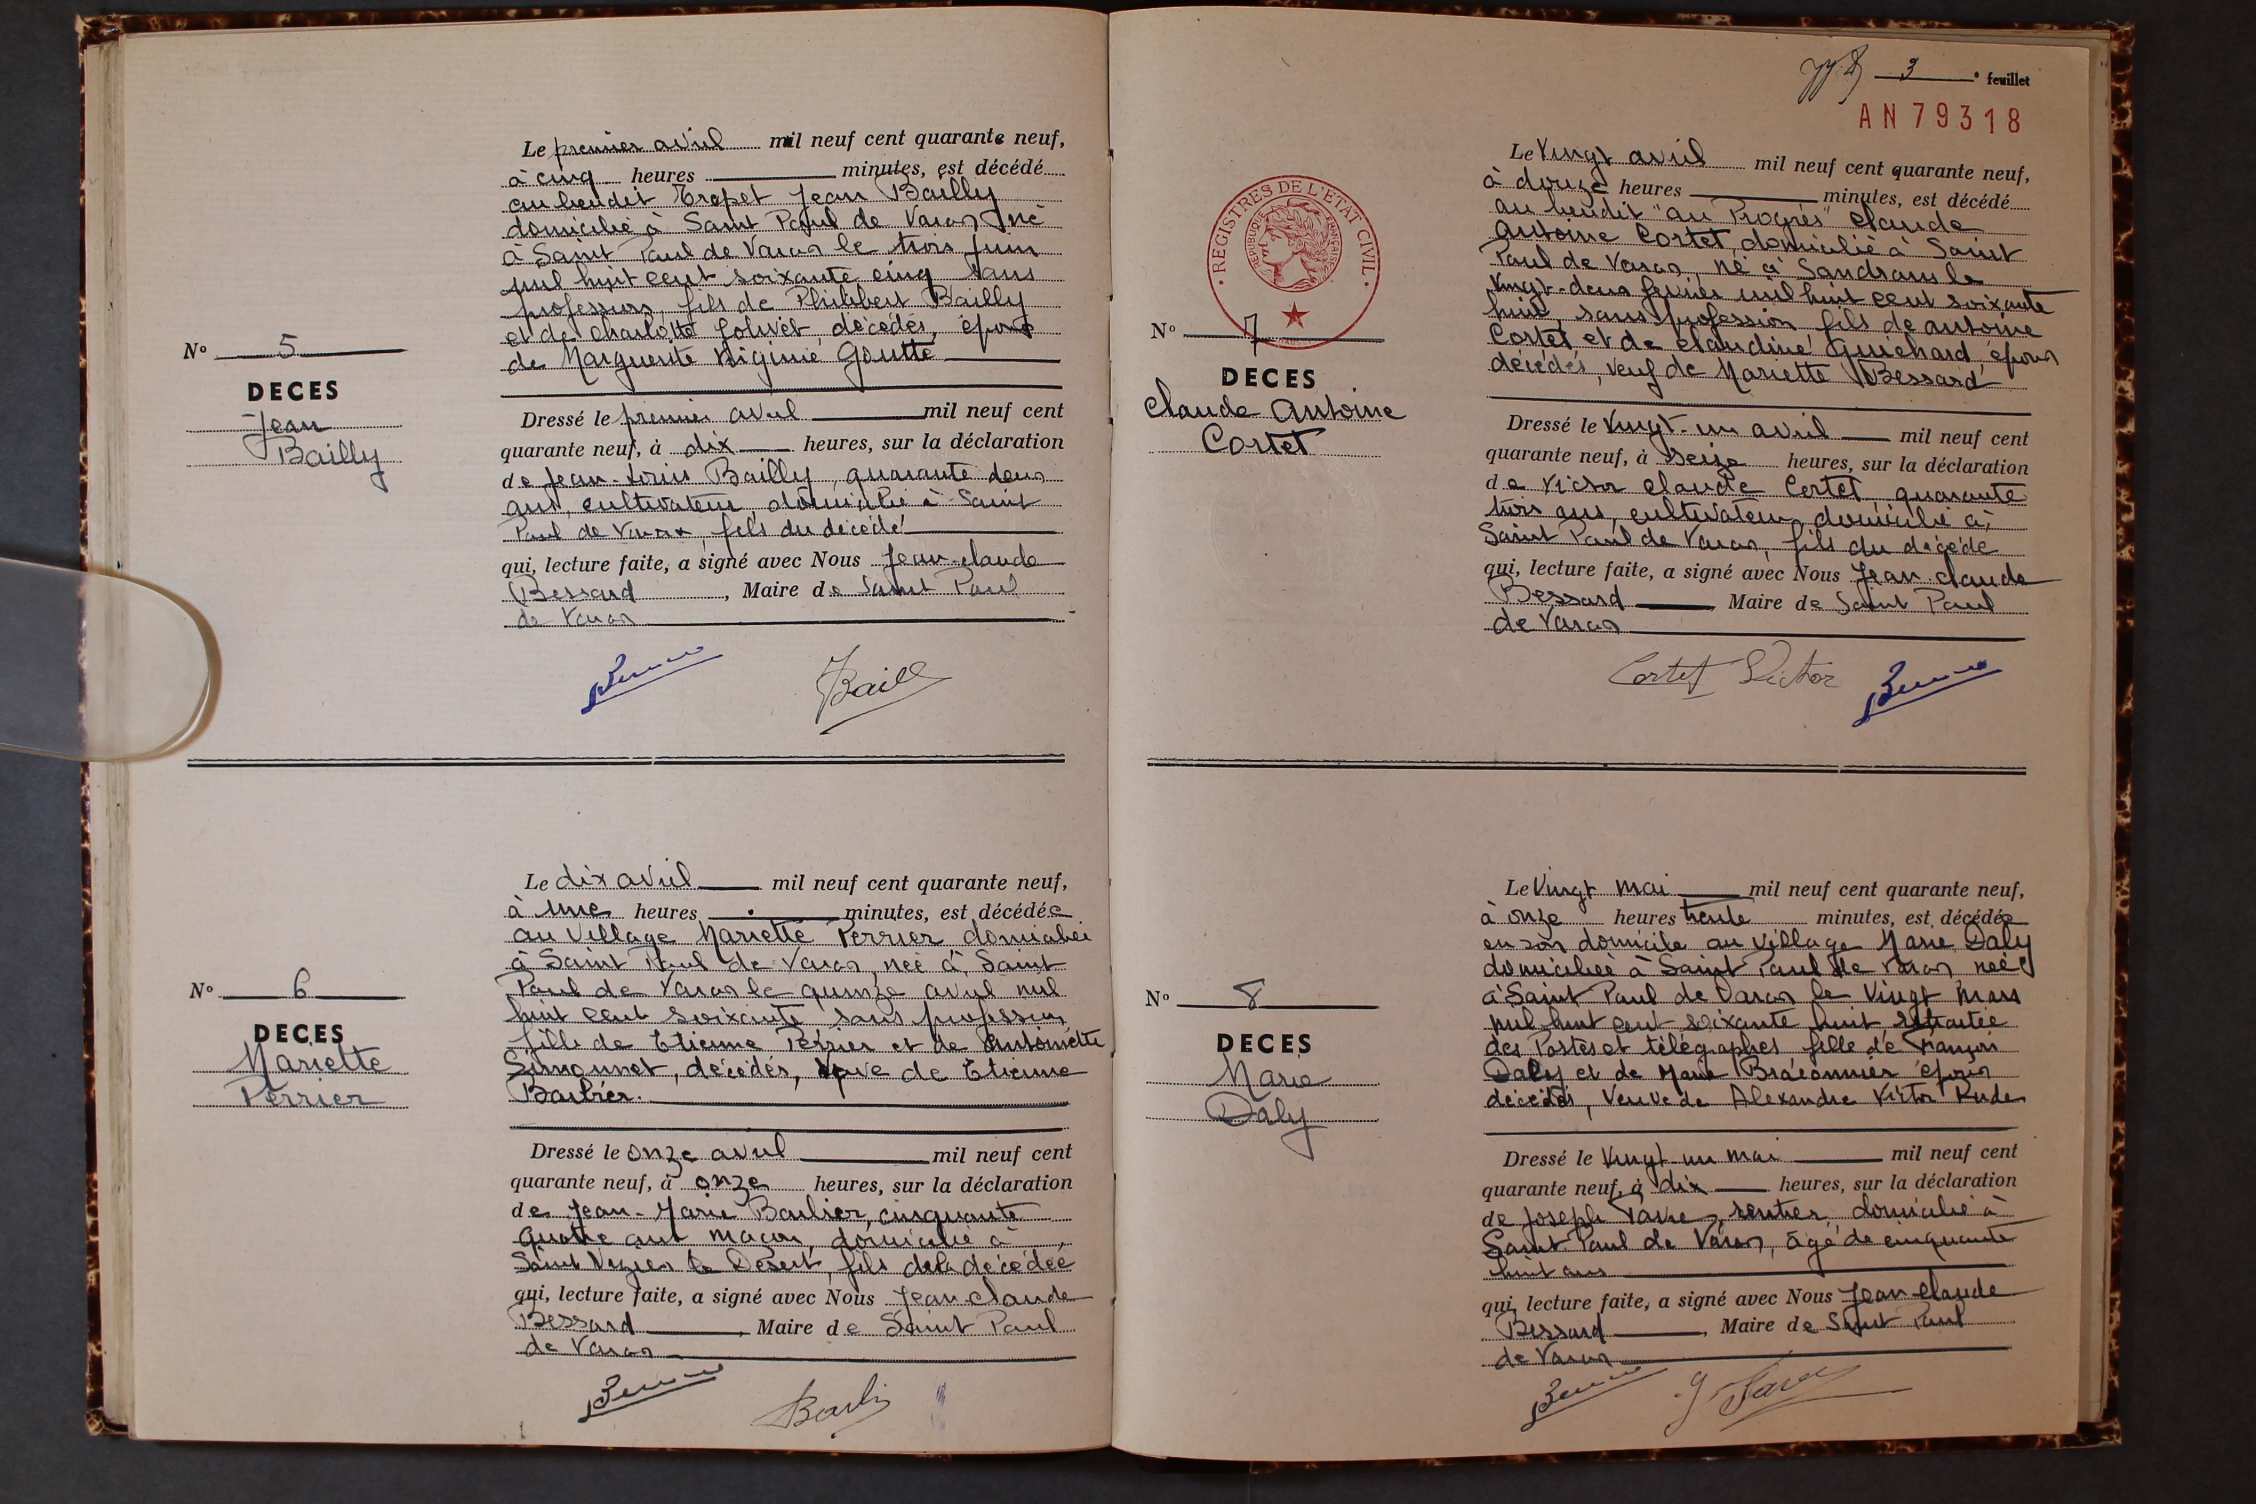 Le premier avril mil neuf cent quarante neuf,
à cinq heures minutes, est décédé
au lieudit Trepet Jean Bailly
domicilié à Saint Paul de Varax né
à Saint Paul de Varax le trois juin
mil huit cent soixante cinq sans
profession, fils de Philibert Bailly
et de Charlotte Jolivet, décédés, époux
de Marguerite Virginie Goutte
N° 5
DECES
Jean
Bailly
Dressé le premier avril mil neuf cent
quarante neuf, à dix heures, sur la déclaration
de Jean-Louis Bailly, quarante deux
ans, cultivateur, domicilié à Saint
Paul de Varax, fils du décédé
qui, lecture faite, a signé avec Nous Jean-Claude
Bessard, Maire de Saint Paul
de Varax
Le dix avril mil neuf cent quarante neuf,
à une heures minutes, est décédée
au Village Mariette Perrier domiciliée
à Saint Paul de Varax, née à Saint
Paul de Varax le quinze avril mil
huit cent soixante, sans profession
fille de Etienne Perrier et de Antoinette
Simonnet, décédés, veuve de Etienne
Barbier.
N° 6
DECES
Mariette
Perrier
Dressé le onze avril mil neuf cent
quarante neuf, à onze heures, sur la déclaration
de Jean-Marie Barbier, cinquante
quatre ans maçon, domicilié à
Saint Nizier le Désert, fils de la décédée
qui, lecture faite, a signé avec Nous Jean-Claude
Bessard, Maire de Saint Paul
de Varax
3e feuillet
AN 79318
REGISTRES DE L'ÉTAT CIVIL
RÉPUBLIQUE FRANÇAISE
Le vingt avril mil neuf cent quarante neuf,
à douze heures minutes, est décédé
au lieudit "au Progrès" Claude
Antoine Cortet, domicilié à Saint
Paul de Varax, né à Sandrans le
vingt-deux février mil huit cent soixante
huit, sans profession fils de Antoine
Cortet et de Claudine Guichard, époux
décédés, veuf de Mariette Bessard
N° 7
DECES
Claude Antoine
Cortet
Dressé le vingt-un avril mil neuf cent
quarante neuf, à seize heures, sur la déclaration
de Victor Claude Cortet quarante
trois ans, cultivateur, domicilié à
Saint Paul de Varax, fils du décédé
qui, lecture faite, a signé avec Nous Jean-Claude
Bessard Maire de Saint Paul
de Varax
Cortet Victor
Le vingt mai mil neuf cent quarante neuf,
à onze heures trente minutes, est décédée
en son domicile au Village Marie Daly
domiciliée à Saint Paul de Varax née
à Saint Paul de Varax le vingt mars
mil huit cent soixante huit, retraitée
des Postes et télégraphes, fille de François
Daly et de Marie Braconnier époux
décédés, Veuve de Alexandre Victor Rude
N° 8
DECES
Marie
Daly
Dressé le vingt-un mai mil neuf cent
quarante neuf, à dix heures, sur la déclaration
de Joseph rentier, domicilié à
Saint Paul de Varax, âgé de cinquante
huit ans
qui, lecture faite, a signé avec Nous Jean-Claude
Bessard, Maire de Saint Paul
de Varax